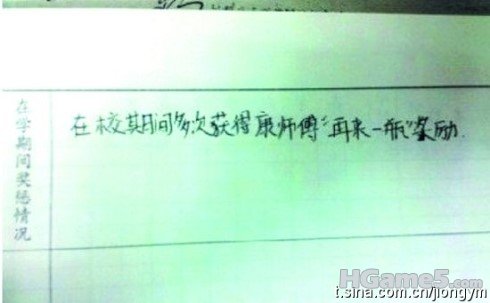 在校期间多次获得康师傅“再来一瓶”奖励.
在学期间奖惩情况
HGame5.com
t.sina.com.cn/jiongym